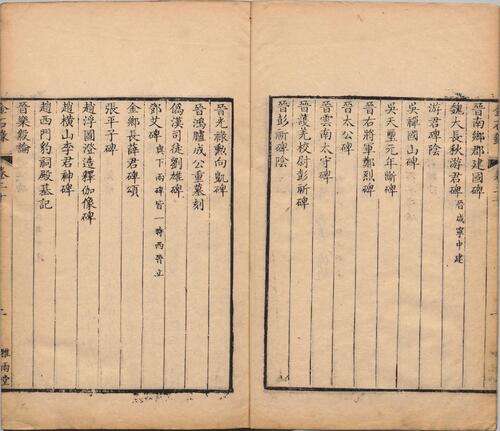 晉南鄉郡建國碑
魏大長秋游君碑 晉咸寧中建
游君碑陰
吳禪國山碑
吳天璽元年斷碑
晉右將軍鄭烈碑
晉太公碑
晉雲南太守碑
晉護羌校尉彭祈碑
晉彭祈碑陰
晉光祿勳向凱碑
晉鴻臚成公重墓刻
偽漢司徒劉雄碑
鄧艾碑 與下兩碑皆一時西晉立
金鄉長薛君碑頌
張平子碑
趙浮圖澄造釋伽像碑
趙橫山李君神碑
趙西門豹祠殿基記
晉樂毅論
金石錄 卷二十
雅雨堂